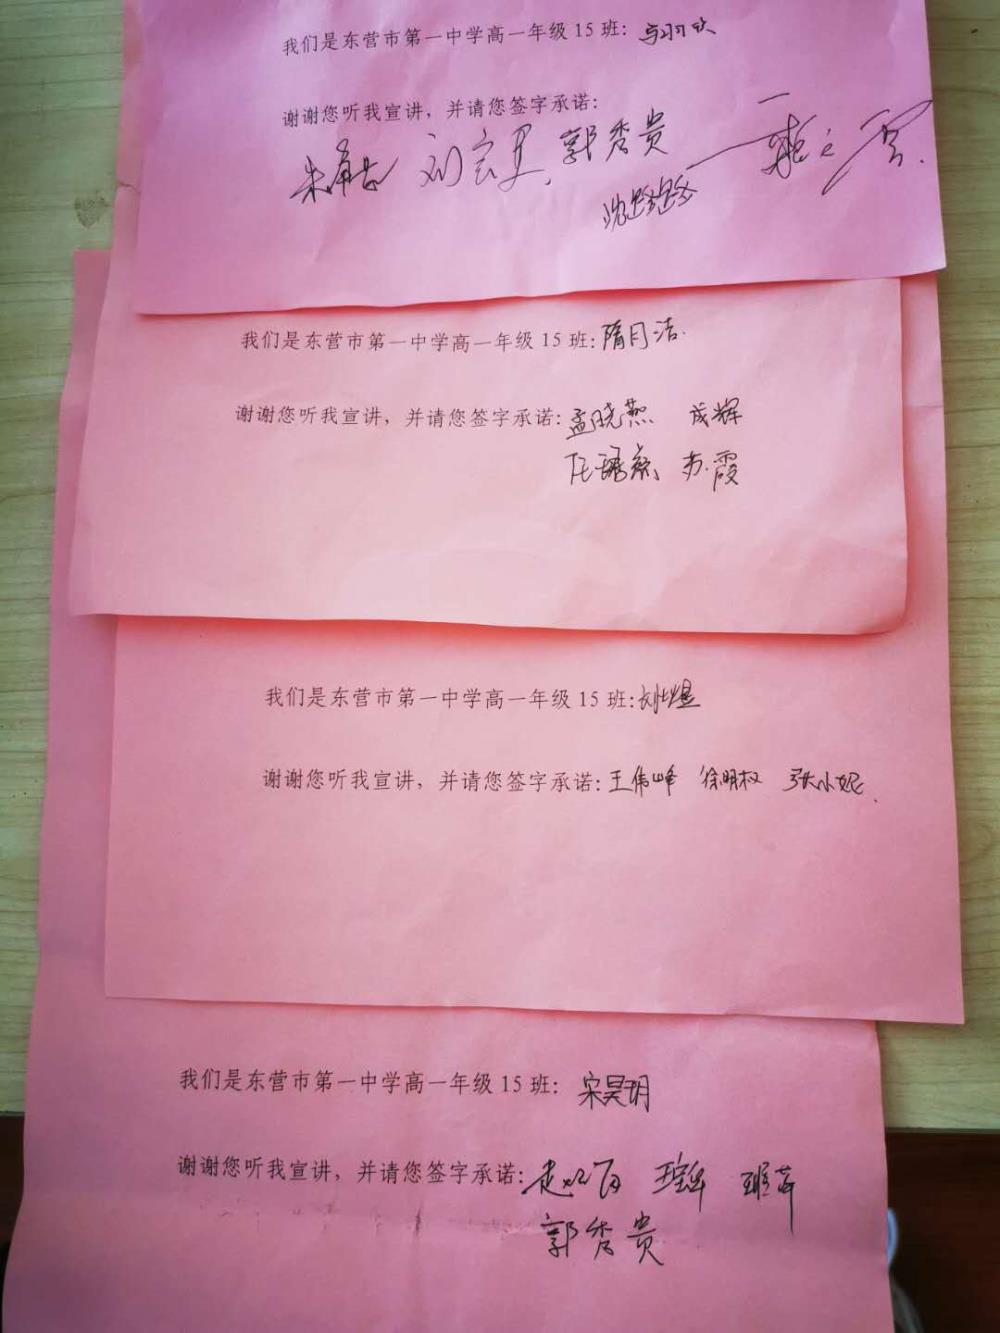 我们是东营市第一中学高一年级 15 班：
谢谢您听我宣讲，并请您签字承诺：
郭秀贵
我们是东营市第一中学高一年级 15 班：隋月洁
谢谢您听我宣讲，并请您签字承诺：孟晓燕 成辉
苏霞
我们是东营市第一中学高一年级 15 班：
谢谢您听我宣讲，并请您签字承诺：王伟峰 徐明权 张小妮
我们是东营市第一中学高一年级 15 班：宋昊玥
谢谢您听我宣讲，并请您签字承诺：
郭秀贵